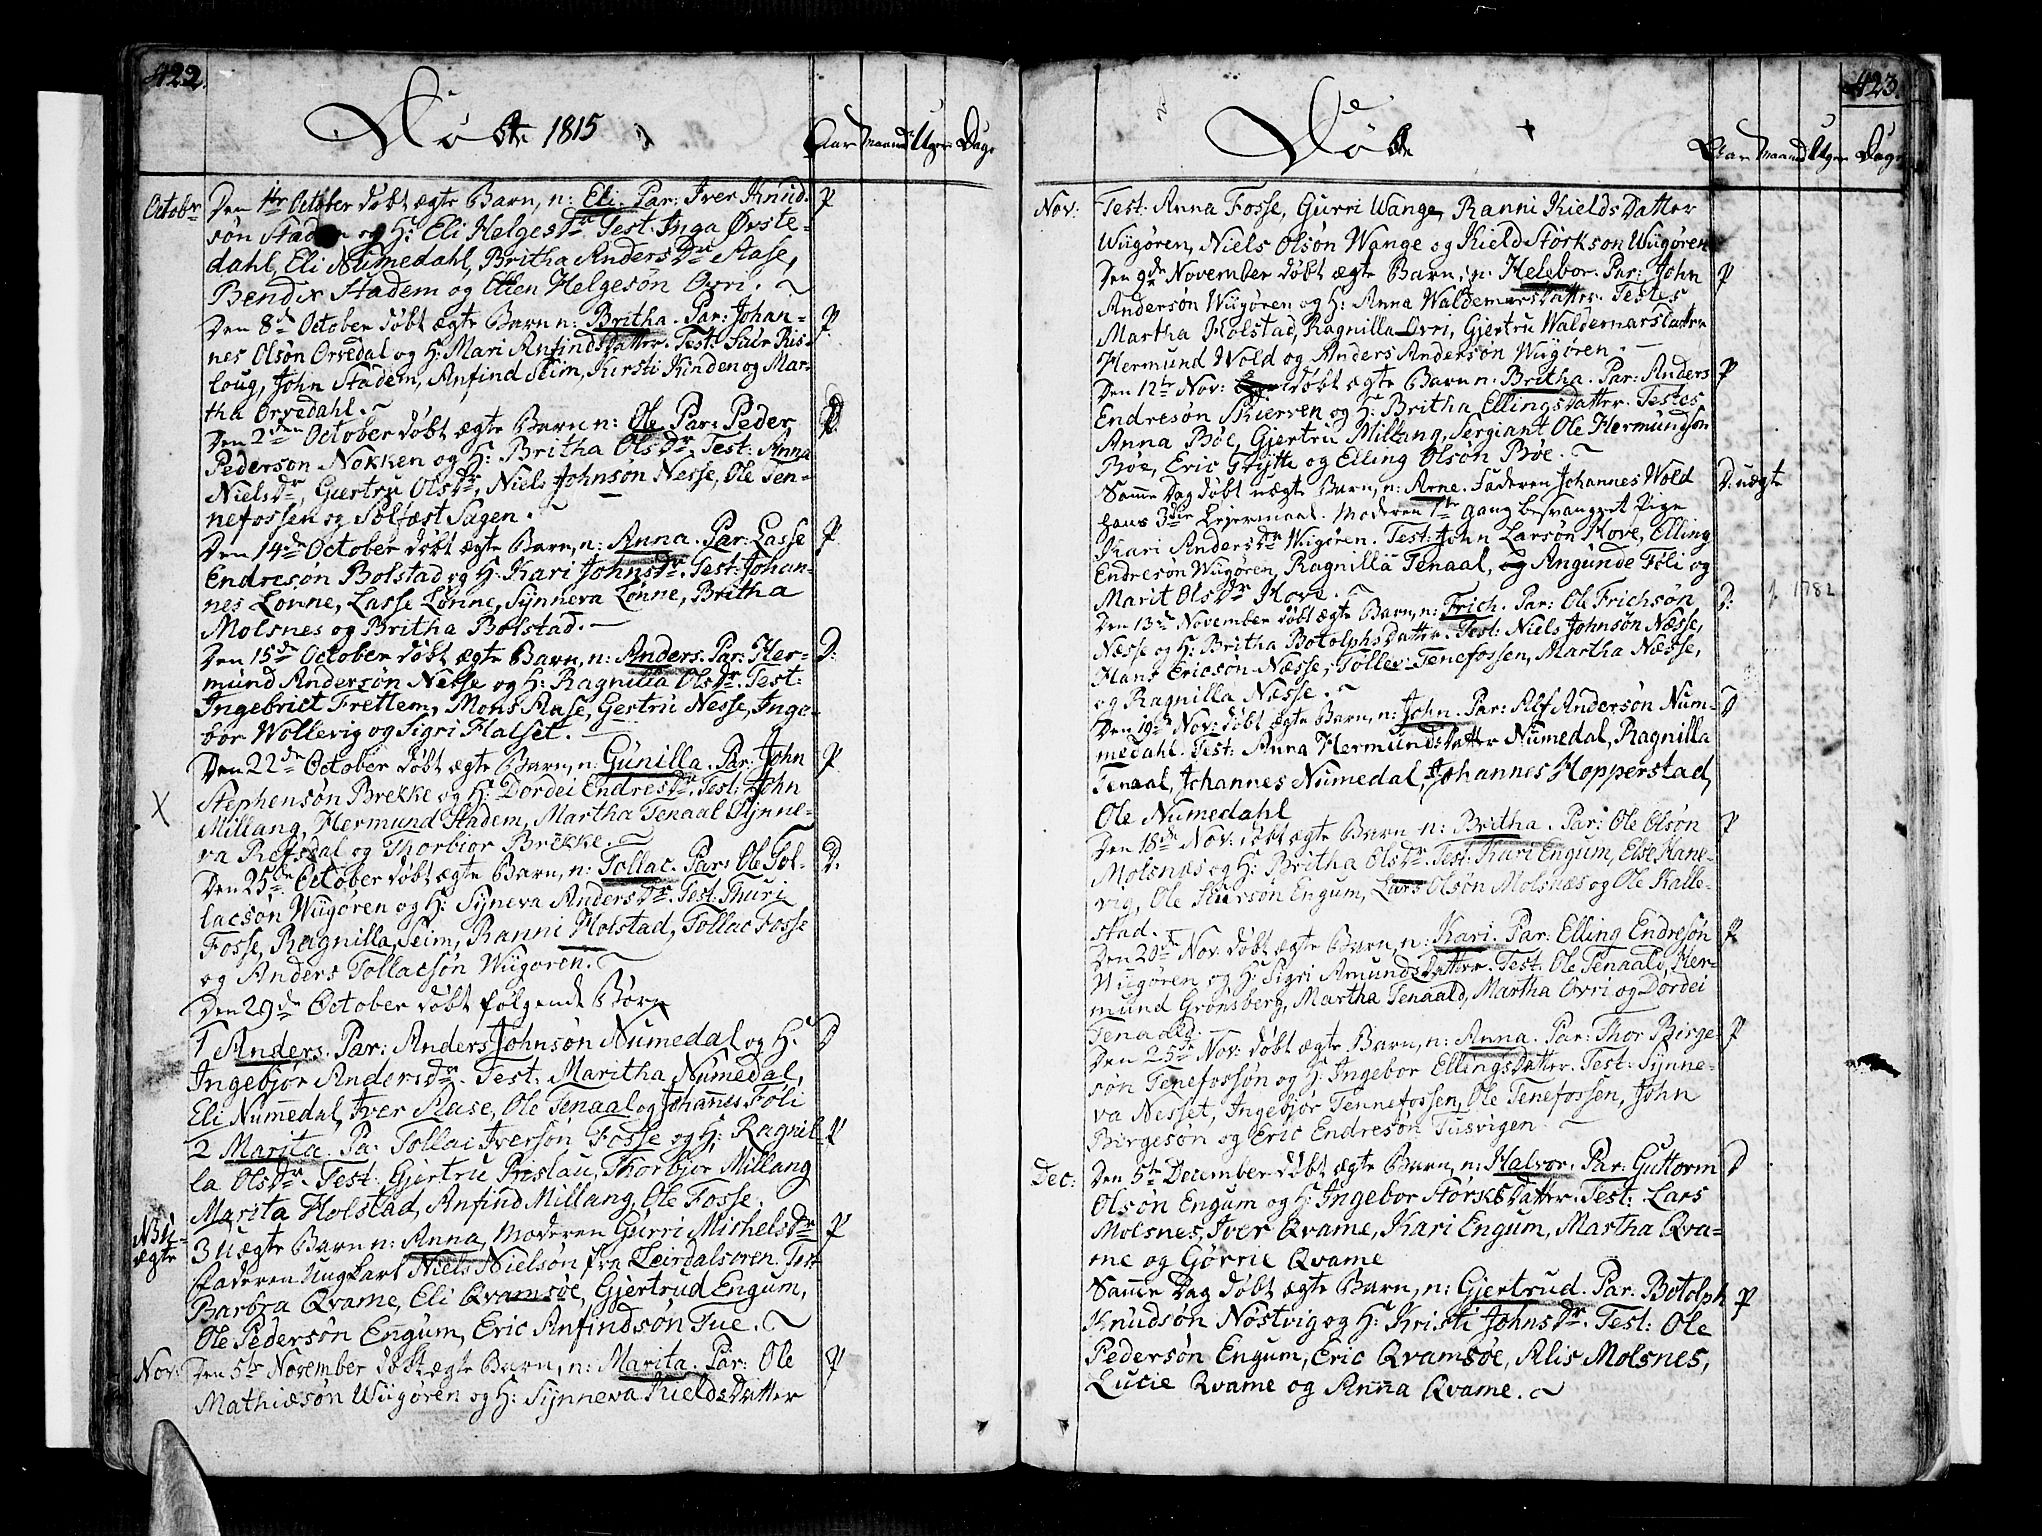 422.
Døbte 1815
Aar Maand: Uger Dage
Octobr Den 1te October døbt ægte Barn, n: Eli. Par: Iver Knud- P
søn Stadem og H: Eli HelgesDr Test: Inga Øvste-
dahl, Eli Numedahl, Britha AndersDr Aase,
Bendix Stadem og Ellen Helgesøn Ovri.
Den 8de October døbt ægte Barn n: Britha. Par: Johan- P.
nes Olsøn Orvedal og H: Mari AnfindsDatter. Test: Siur Ris-
loug, John Stadem, Anfind Seim, Kirsti Kinden og Mar-
tha Orvedahl.
Den 2den October døbt ægte Barn n: Ole Par: Peder D.
Pederson Nokken og H: Britha OlsDr, Test: Anna
NielsDr, Giertru OlsDr, Niels Johnsøn Nesse, Ole Ten-
nefossen og Solfæst Sagen.
Den 14de October døbt ægte Barn, n: Anna. Par: Lasse P.
Endresøn Bolstad og H: Kari JohnsDr. Test: Johan-
nes Lønne, Lasse Lønne, Synneva Lønne, Britha
Molsnes og Britha Bolstad.
Den 15de October døbt ægte Barn, n: Anders. Par: Her- D:
mund Andersøn Nesse og H: Ragnilla OlsDr. Test:
Ingebrict Frettem, Mons Aase, Gertru Nesse, Inge-
bor Wollevig og Sigri Halset.
Den 22de October døbt ægte Barn, n: Gunilla. Par: John P.
Stephensøn Brekke og H: Dordei EndresDr. Test: John
X Millang, Hermund Stadem, Martha Tenaal Synne-
va Refsdal og Thorbiør Brekke.
Den 25de October døbt ægte Barn, n: Tollac. Par: Ole Tol- D.
lacsøn Wiigøren og H: Syneva AndersDr. Test: Thuri
Fosse, Ragnilla Seim, Ranni Holstad, Tollac Fosse
og Anders Tollacsøn Wiigøren.
Den 29de October døbt følgende Børn
1 Anders. Par: Anders Johnsøn Numedal og H: D
Ingebjør AndersDr. Test: Maritha Numedal,
Eli Numedal, Iver Aase, Ole Tenaal og Johannes Føli
2 Marita. Pa: Tollac Iversøn Fosse og H: Ragnil- P
la OlsDr. Test: Gjertru Prislau, Thorbjør Millang
Marita Holstad, Anfind Millang, Ole Fosse.
NB u-ægte 3 Uægte Barn n: Anna, Moderen Gurri MichelsDr P
Faderen Ungkarl Niels Nielsøn fra Leirdalsøren. Test
Barbra Qvame, Eli Qvamsøe, Gjertrud Engum,
Ole Pedersøn Engum, Eric Anfindsøn Tue.
Nov: Den 5te November døbt ægte Barn, n: Marita. Par: Ole P
Mathiesøn Wiigøren og H: Synneva KieldsDatter
423.
Døbte
Aar Maand Uger Dage
Nov: Test: Anna Fosse, Gurri Wange, Ranni KieldsDatter
Wiigøren, Niels Olsøn Wange og Kield Størkson Wiigøren
Den 9de November døbt ægte Barn, n: Helebor. Par: John P
Andersøn Wiigøren og H: Anna WaldemarsDatter. Testes
Martha Holstad, Ragnilla Ovri, Gjertru WaldemarsDatter
Hermund Wold og Anders Andersøn Wiigøren.
Den 12te Nov: døbt ægte Barn n: Britha. Par: Anders P
Endresøn Skierven og H: Britha EllingsDatter. Testes
Anna Bøe, Gjertru Millang, Sergiant Ole Hermundsøn
Bøe, Eric Grytte og Elling Olsøn Bøe.
Samme Dag døbt uægte Barn, n: Arne. Faderen Johannes Wold D: uægte
hans 3die Leiermaal. Moderen 1te gang besvangret Pige
Kari AndersDr Wiigøren. Test: John Larsøn Hove, Elling
Endresøn Wiigøren, Ragnilla Tenaal, og Angunde Føli og
Marit OlsDr Hove.
Den 13de November døbt ægte Barn, n: Erich. Par: Ole Erichsøn D: 1782
Næsse og H: Britha BotolphsDatter. Test: Niels Johnsøn Næsse,
Hans Ericsøn Næsse, Tollev Tenefossen, Martha Næsse,
og Ragnilla Næsse.
Den 19de Nov: døbt ægte Barn, n: John. Par: Alf Andersøn Num- D
medahl. Test: Anna HermundsDatter Numedal, Ragnilla
Tenaal, Johannes Numedal, Johannes Hopperstad,
Ole Numedahl
Den 18de Nov: døbt ægte Barn n: Britha. Par: Ole Olsøn P
Molsnæs og H: Britha OlsDr. Test: Kari Engum, Else Hane-
vig, Ole Siursøn Engum, Lars Olsøn Molsnæs og Ole Kalle-
stad.
Den 20de Nov. døbt ægte Barn, n: Kari. Par: Elling Endresøn P.
Wiigøren og H: Sigri AmundsDatter. Test: Ole Tenaald, Her-
mund Grønsberg, Martha Tenaald, Martha Ovri og Dordei
Tenaald.
Den 25de Nov: døbt ægte Barn, n: Anna. Par: Thor Birge- P
søn Tenefossøn og H: Ingebor EllingsDatter. Test: Synne-
va Nesset, Ingebjør Tennefossen, Ole Tenefossen, John
Birgesøn og Eric Endresøn Tusvigen.
Dec: Den 5te December døbt ægte Barn, n: Halvor. Par: Guttorm D
Olsøn Engum og H: Ingebor StørksDatter. Test: Lars
Molsnes, Iver Qvame, Kari Engum, Martha Qva-
me og Gørrie Qvame
Samme Dag døbt ægte Barn, n: Gjertrud. Par: Botolph P
Knudsøn Nøstvig og H: Kristi JohnsDr. Test: Ole
Pedersøn Engum, Eric Qvamsøe, Alis Molsnes,
Lucie Qvame og Anna Qvame.